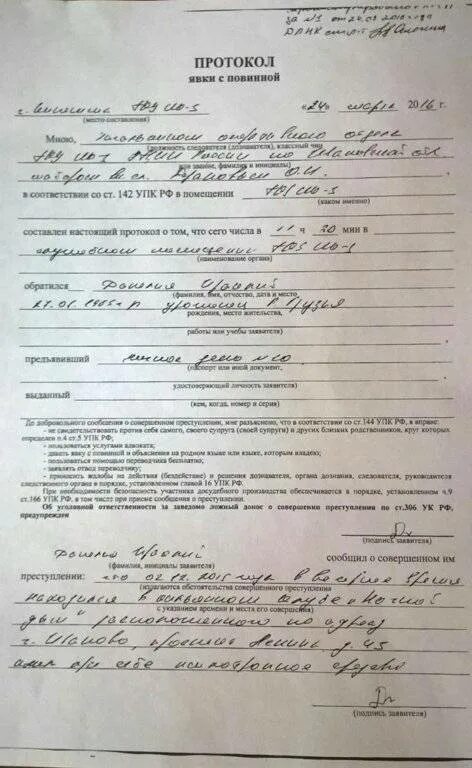 за №1 от 24.03.2016 года
ПРОТОКОЛ
явки с повинной
г. Кинешма ФКУ ИК-5 «24» марта 2016 г.
(место составления)
Мною, Начальником оперативного отдела
(должность следователя (дознавателя), классный чин
России по Ивановской
или звание, фамилия и инициалы)
О.И.
в соответствии со ст. 142 УПК РФ в помещении
(каком именно)
составлен настоящий протокол о том, что сего числа в 11 ч 20 мин в
служебном помещении
(наименование органа)
обратился
(фамилия, имя, отчество, дата и место,
уроженец
рождения, место жительства,
работы или учебы заявителя)
предъявивший личное дело
(паспорт или иной документ,
удостоверяющий личность заявителя)
выданный
(кем, когда, номер и серия)
До добровольного сообщения о совершенном преступлении, мне разъяснено, что в соответствии со ст.144 УПК РФ, я вправе:
- не свидетельствовать против себя самого, своего супруга (своей супруги) и других близких родственников, круг которых
определен п.4 ст.5 УПК РФ;
- пользоваться услугами адвоката;
- давать явку с повинной и объяснения на родном языке или языке, которым владею;
- пользоваться помощью переводчика бесплатно;
- заявлять отвод переводчику;
- приносить жалобы на действия (бездействие) и решения дознавателя, органа дознания, следователя, руководителя
следственного органа в порядке, установленном главой 16 УПК РФ.
При необходимости безопасность участника досудебного производства обеспечивается в порядке, установленном ч.9
ст.166 УПК РФ, в том числе при приеме сообщения о преступлении.
Об уголовной ответственности за заведомо ложный донос о совершении преступления по ст.306 УК РФ,
предупрежден
(подпись заявителя)
сообщил о совершенном им
(фамилия, инициалы заявителя)
преступлении: 02.12.2015 года в вечернее время
(излагаются обстоятельства совершенного преступления
находился в клубе «Ночной
с указанием времени и места его совершения)
дым» расположенного по адресу
г. Иваново, проспект Ленина д. 43
имел при себе средство
(подпись заявителя)